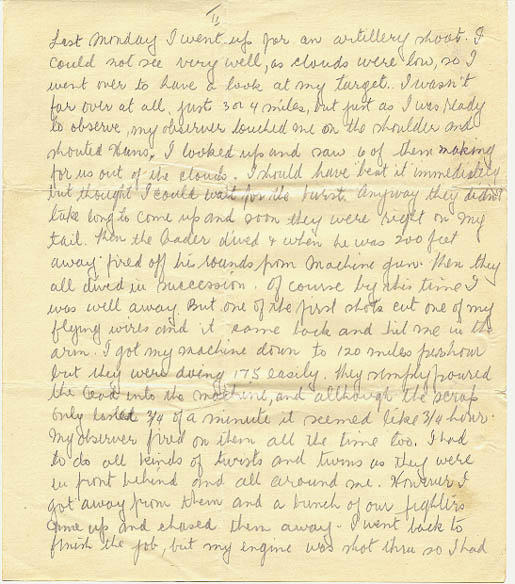 II
Last Monday I went up for an artillery shoot. I
could not see very well, as clouds were low, so I
went over to have a look at my target. I wasn't
far over at all, just 3 or 4 miles, but just as I was ready
to observe, my observer touched me on the shoulder and
shouted Huns, I looked up and saw 6 of them making
for us out of the clouds. I should have beat it immediately
but thought I could wait for the burst. Anyway they didn't
take long to come up and soon they were right on my
tail. Then the leader dived & when he was 200 feet
away fired off his rounds from machine gun. Then they
all dived in succession. Of course by this time I
was well away. But one of the first shots cut one of my
flying wires and it came back and hit me in the
arm. I got my machine down to 120 miles per hour
but they were doing 175 easily. They simply poured
the lead into the machine, and although the scrap
only lasted 3/4 of a minute it seemed like 3/4 hour.
My observer fired on them all the time too. I had
to do all kinds of twists and turns as they were
in front behind and all around me. However I
got away from them and a bunch of our fighters
came up and chased them away. I went back to
finish the job, but my engine was shot thru so I had